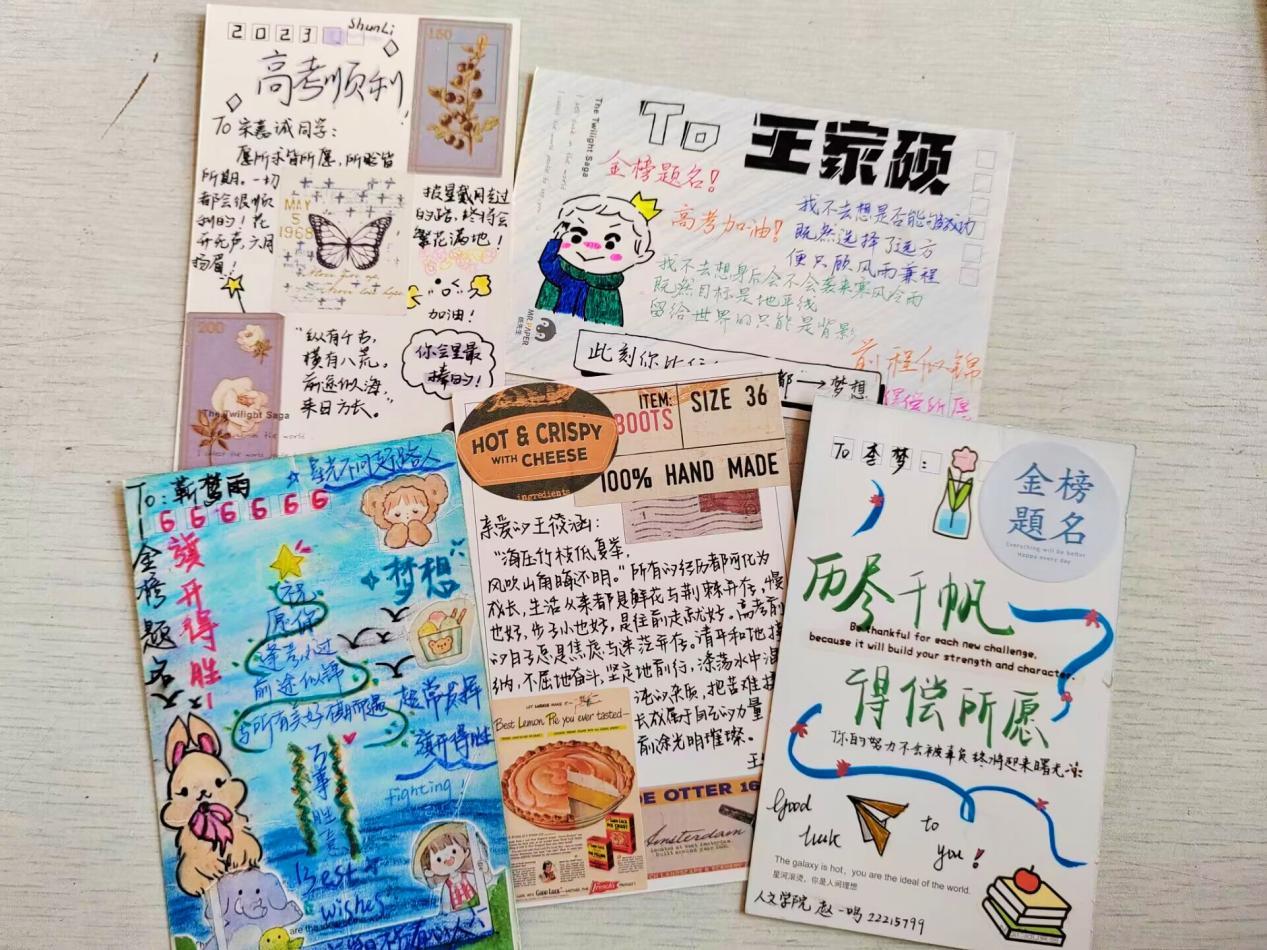 2023
ShunLi
高考顺利!
To 宋嘉诚同学:
愿所求皆所愿,所盼皆
所期。一切
都会很顺
利的!花
开无声,六月
扬眉!
150
MAY
5
1968
披星戴月走过
的路,终将会
繁花满地!
加油!
你会是最
棒的!
200
“纵有千古,
横有八荒。
前途似海,
来日方长。”
The Twilight Saga
The Twilight Saga
To 王家硕
金榜题名!
高考加油!
我不去想是否能够成功
既然选择了远方
便只顾风雨兼程
我不去想身后会不会袭来寒风冷雨
既然目标是地平线
留给世界的只能是背影
MR.PAPER
纸先生
前程似锦
得偿所愿
此刻你
都→梦想
To:靳梦雨
星光不问赶路人
666666
金榜题名
旗开得胜!
梦想
祝
愿你
逢考必过
前途似锦
与所有美好不期而遇
超常发挥
旗开得胜
fighting!
万事胜意
Best
wishes
HOT & CRISPY
WITH CHEESE
ingredients
ITEM:
BOOTS
SIZE 36
100% HAND MADE
亲爱的王筱涵:
“海压竹枝低复举,
风吹山角晦还明。”所有的经历都可化为
成长,生活从来都是鲜花与荆棘并存,慢
也好,步子小也好,是往前走就好。高考前
的日子总是焦虑与迷茫并存。请平和地接
纳,不屈地奋斗,坚定地前行,涤荡水中混
沌的杂质,把苦难
长成属于自己的力量
前途光明璀璨。
Best Lemon Pie you ever tasted
DE OTTER 16
Amsterdam
To 李梦:
金榜
題名
Everything will be better
Happy every day
历尽千帆
Be thankful for each new challenge,
because it will build your strength and character.
得偿所愿
你的努力不会被辜负终将迎来曙光
Good
luck
to
you!
The galaxy is hot, you are the ideal of the world.
星河滚烫,你是人间理想
人文学院 赵一鸣 22215799